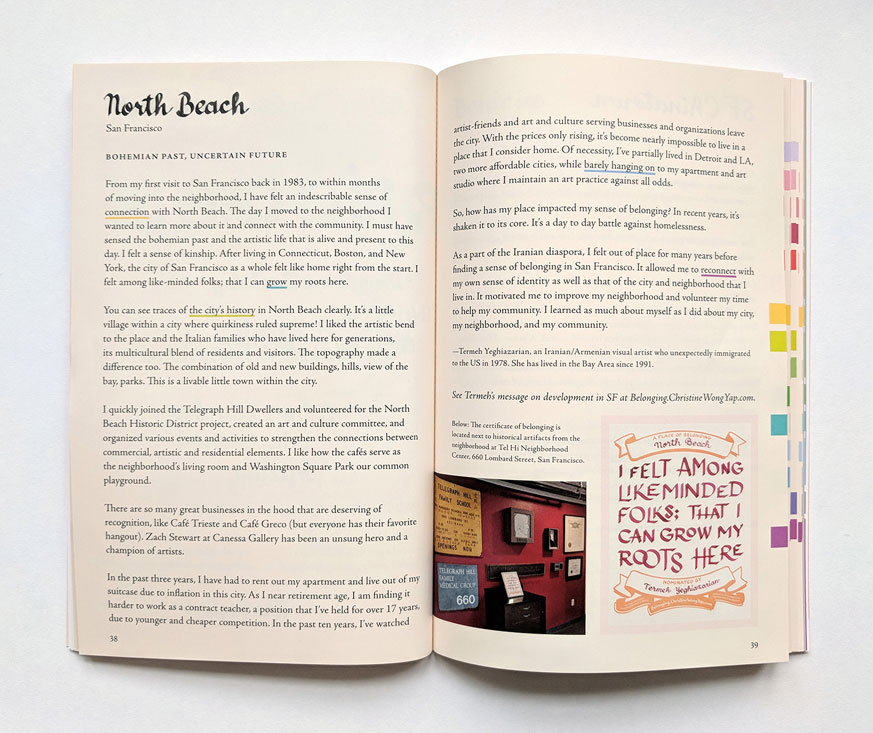 North Beach
San Francisco
BOHEMIAN PAST, UNCERTAIN FUTURE
From my first visit to San Francisco back in 1983, to within months
of moving into the neighborhood, I have felt an indescribable sense of
connection with North Beach. The day I moved to the neighborhood I
wanted to learn more about it and connect with the community. I must have
sensed the bohemian past and the artistic life that is alive and present to this
day. I felt a sense of kinship. After living in Connecticut, Boston, and New
York, the city of San Francisco as a whole felt like home right from the start. I
felt among like-minded folks; that I can grow my roots here.
You can see traces of the city's history in North Beach clearly. It's a little
village within a city where quirkiness ruled supreme! I liked the artistic bend
to the place and the Italian families who have lived here for generations,
its multicultural blend of residents and visitors. The topography made a
difference too. The combination of old and new buildings, hills, view of the
bay, parks. This is a livable little town within the city.
I quickly joined the Telegraph Hill Dwellers and volunteered for the North
Beach Historic District project, created an art and culture committee, and
organized various events and activities to strengthen the connections between
commercial, artistic and residential elements. I like how the cafés serve as
the neighborhood's living room and Washington Square Park our common
playground.
There are so many great businesses in the hood that are deserving of
recognition, like Café Trieste and Café Greco (but everyone has their favorite
hangout). Zach Stewart at Canessa Gallery has been an unsung hero and a
champion of artists.
In the past three years, I have had to rent out my apartment and live out of my
suitcase due to inflation in this city. As I near retirement age, I am finding it
harder to work as a contract teacher, a position that I've held for over 17 years,
due to younger and cheaper competition. In the past ten years, I've watched
38
artist-friends and art and culture serving businesses and organizations leave
the city. With the prices only rising, it's become nearly impossible to live in a
place that I consider home. Of necessity, I've partially lived in Detroit and LA,
two more affordable cities, while barely hanging on to my apartment and art
studio where I maintain an art practice against all odds.
So, how has my place impacted my sense of belonging? In recent years, it's
shaken it to its core. It's a day to day battle against homelessness.
As a part of the Iranian diaspora, I felt out of place for many years before
finding a sense of belonging in San Francisco. It allowed me to reconnect with
my own sense of identity as well as that of the city and neighborhood that I
live in. It motivated me to improve my neighborhood and volunteer my time
to help my community. I learned as much about myself as I did about my city,
my neighborhood, and my community.
—Termeh Yeghiazarian, an Iranian/Armenian visual artist who unexpectedly immigrated
to the US in 1978. She has lived in the Bay Area since 1991.
See Termeh's message on development in SF at Belonging.ChristineWongYap.com.
Below: The certificate of belonging is
located next to historical artifacts from the
neighborhood at Tel Hi Neighborhood
Center, 660 Lombard Street, San Francisco.
TELEGRAPH HILL
FAMILY SCHOOL
OPENINGS NOW
TELEGRAPH HILL
FAMILY
MEDICAL GROUP
660
A PLACE OF BELONGING
North Beach
I FELT AMONG
LIKEMINDED
FOLKS; THAT I
CAN GROW MY
ROOTS HERE
NOMINATED BY
Termeh Yeghiazarian
39